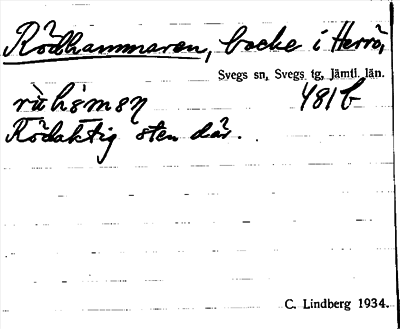 Rödhammaren, backe i Herrö,
Svegs sn, Svegs tg, Jämtl. län.
481b
Rödaktig sten där.
C. Lindberg 1934.